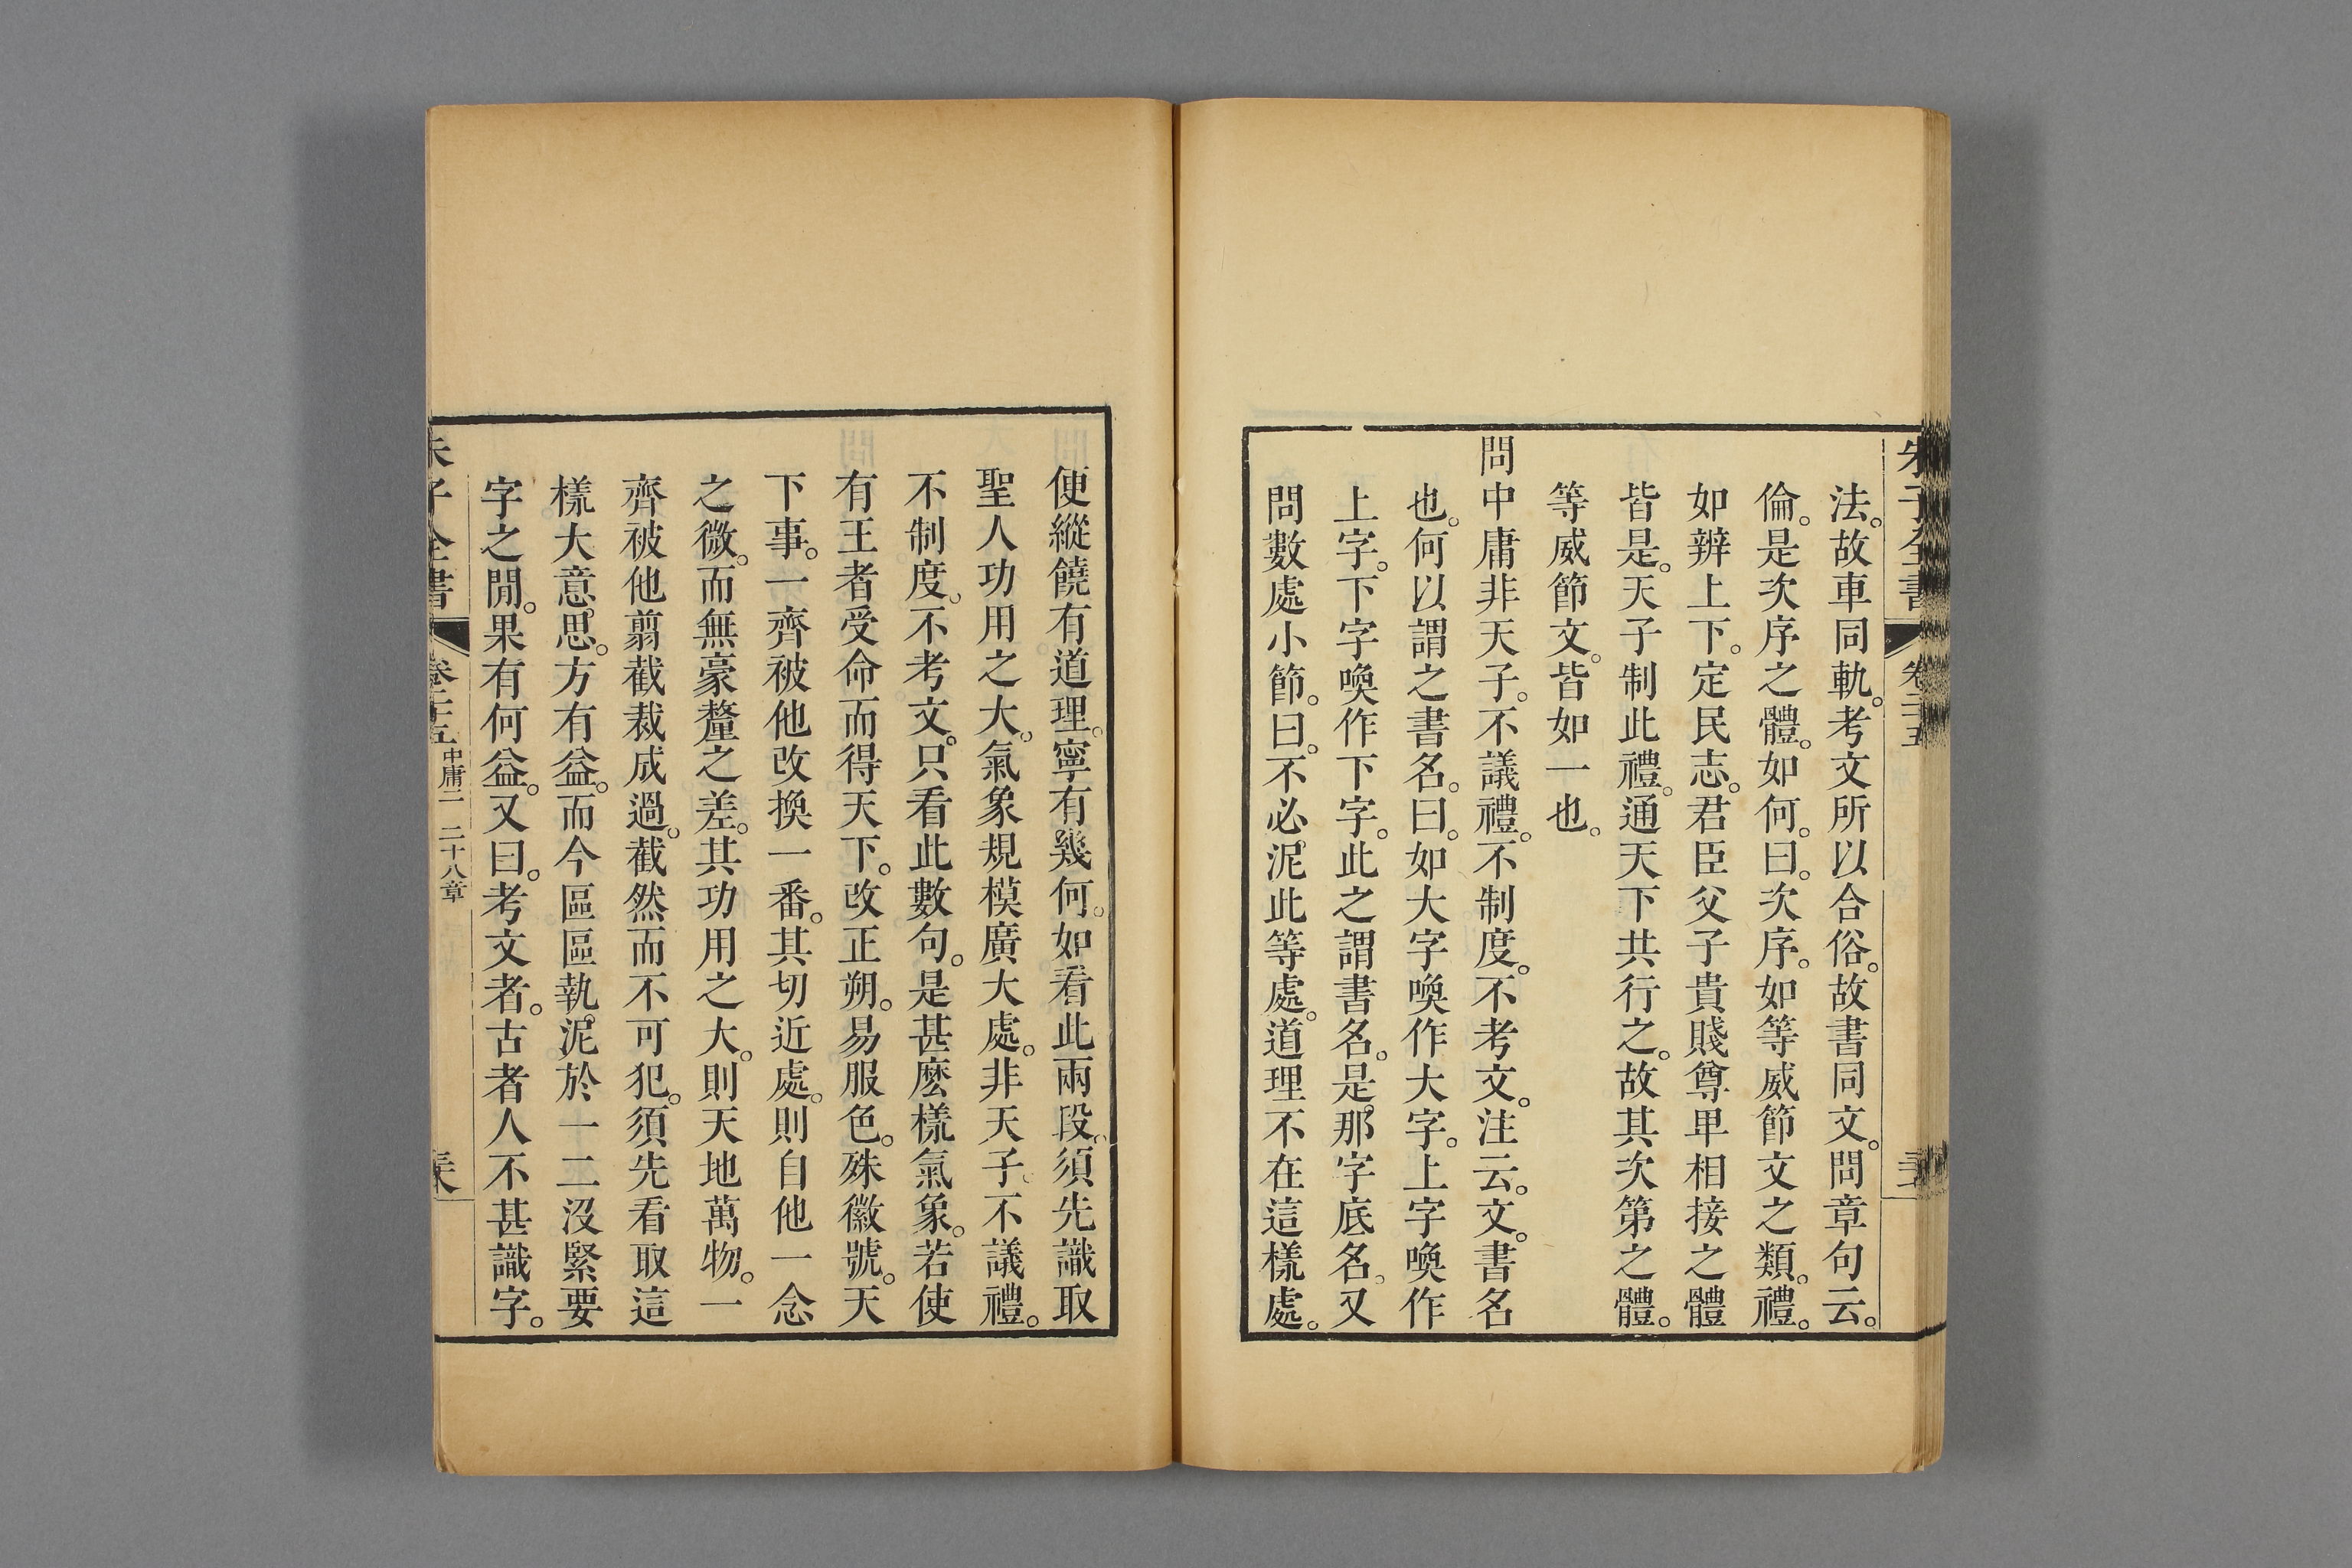 法。故車同軌。考文所以合俗。故書同文。問章句云。
倫。是次序之體。如何。曰。次序。如等威節文之類。禮。
如辨上下。定民志。君臣父子貴賤尊卑相接之體
皆是。天子制此禮。通天下共行之。故其次第之體。
等威節文。皆如一也。
問中庸非天子。不議禮。不制度。不考文。注云。文。書名
也。何以謂之書名。曰。如大字喚作大字。上字喚作
上字。下字喚作下字。此之謂書名。是那字底名。又
問數處小節。曰。不必泥此等處。道理不在這樣處。
便縱饒有道理。寧有幾何。如看此兩段。須先識取
聖人功用之大。氣象規模廣大處。非天子。不議禮。
不制度。不考文。只看此數句。是甚麽樣氣象。若使
有王者受命而得天下。改正朔。易服色。殊徽號。天
下事。一齊被他改換一番。其切近處。則自他一念
之微。而無豪釐之差。其功用之大。則天地萬物。一
齊被他翦截裁成過。截然而不可犯。須先看取這
樣大意思。方有益。而今區區執泥於一二沒緊要
字之閒。果有何益。又曰。考文者。古者人不甚識字。
朱子全書 卷二十五 中庸二 二十八章